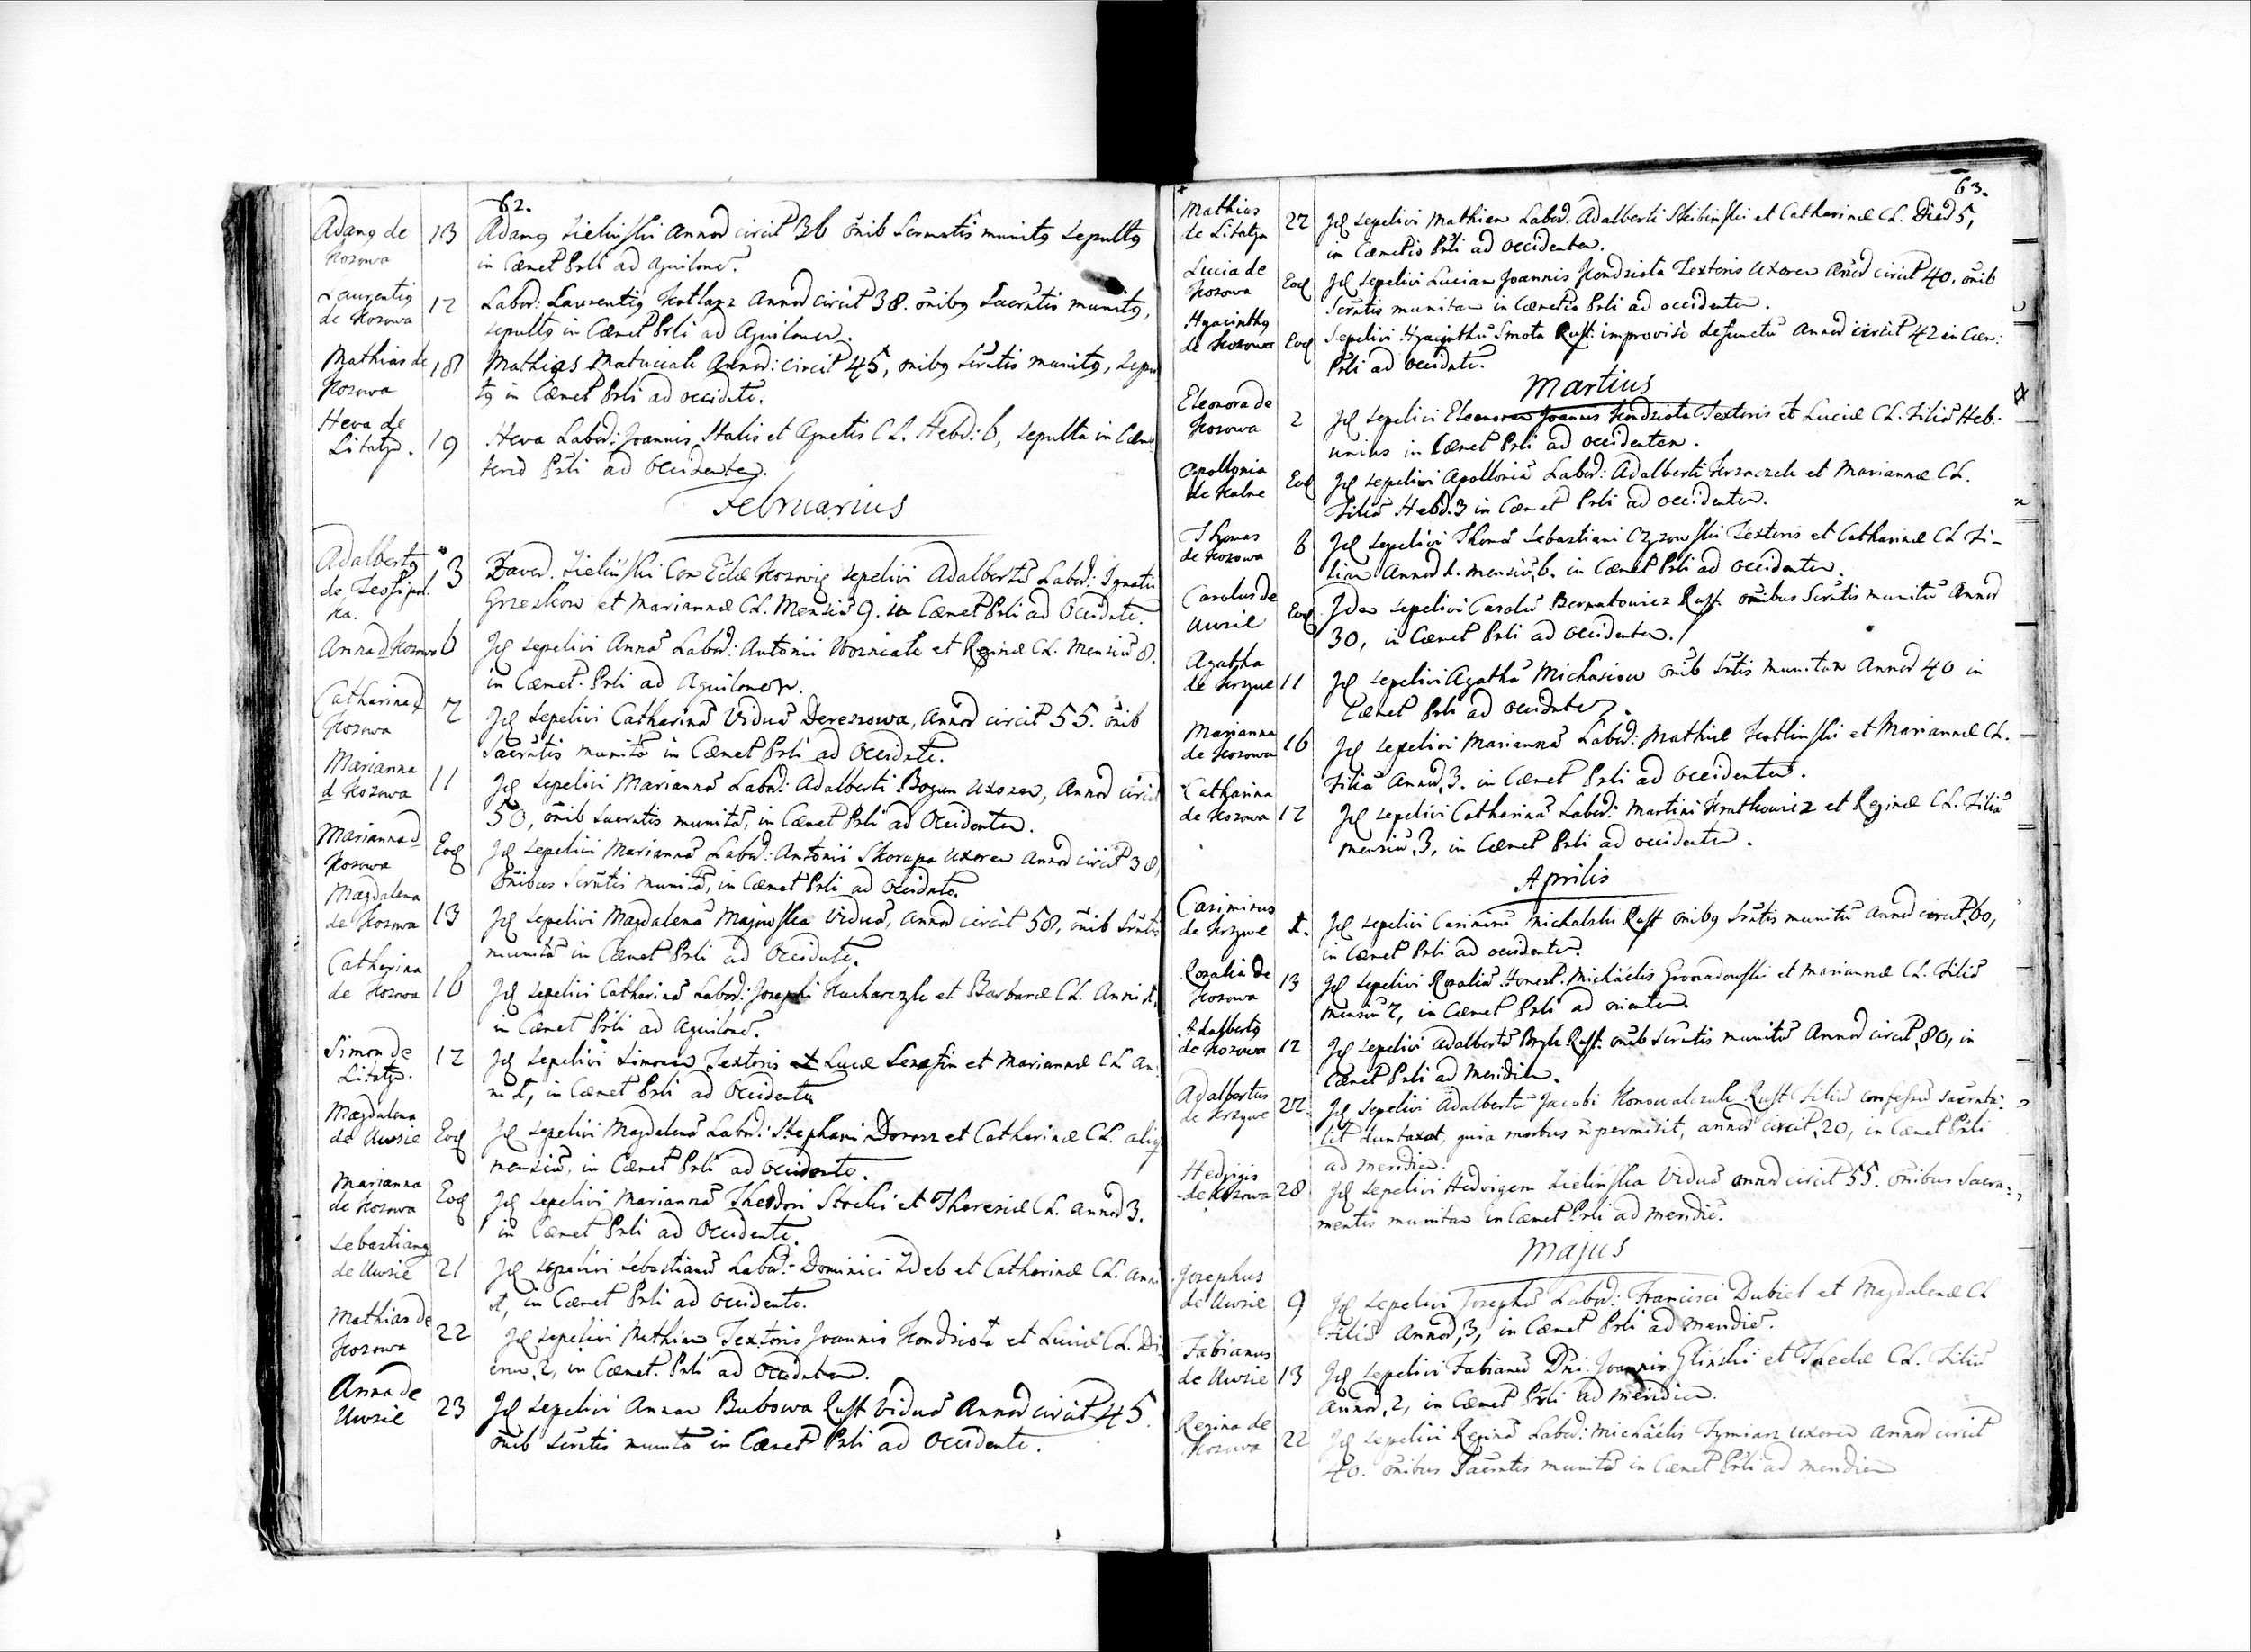 62.
Adamg de
Kozowa
13
Adamg Zielinski Annor circit 36 onib Scrmntis munitg sepultg
in Cæmet Prli ad aquilone.
Laurentig
de Kozowa
17
Labor: Laurentig Kotlarz Annor circit 38. onibg Sacrntis munitg,
sepultg in Cæmet Prli ad Aquilonem.
Mathias de
Kozowa
18
Mathias Matuciak Annor: circit 45, onibg Scrntis munitg, Sepu
tg in Cæmet Prli ad occidnte.
Heva de
Litatyn.
19
Heva Labor: Joannis Stalis et Agnetis C L. Hebd: 6, sepulta in Cæme
terio Prli ad Occidentem.
Februarius
Adalbertg
de Teofipol
ka.
3
Xaver. Zielinski Com Eclæ Kozovie sepelivi Adalbertu Labor: Ignatii
Grzeskow et Mariannæ CL. Mensiu 9. in Cæmet Prli ad Occidnte.
Anna d Kozowa
6
Id sepelivi Anna Labor: Antonii Wozniak et Reginæ CL. Mensiu 8.
in Cæmet. Prli ad Aquilonem.
Catharina d
Kozowa
7
Id sepelivi Catharina Vidua Dereszowa, Annor circit 55. onib
Sacrntis munita in Cæmet Prli ad Occidnte.
Marianna
d Kozowa
11
Id sepelivi Marianna Labor: Adalberti Bogun Uxorem, Annor circit
50, onib Sacrntis munita, in Cæmet Prli ad Occidentem.
Marianna d
Kozowa
Eod
Id sepelivi Marianna Labor: Antonii Skorupa Uxorem Annor circit 38,
Onibus Scrntis munita, in Cæmet Prli ad Occidnte.
Magdalena
de Kozowa
13
Id sepelivi Magdalena Majowska Vidua, Annor circit 58, onib Scrntis
munita in Cæmet Prli ad Occidnte.
Catherina
de Kozowa
16
Id sepelivi Catharina Labor: Josephi Kucharczyk et Barbaræ CL. Anni 1,
in Cæmet Prli ad Aquilone.
Simon de
Litatyn.
17
Id sepelivi Simonem Textoris Lucæ Serafin et Mariannæ CL An
ni 1, in Cæmet Prli ad Occidente
Magdalena
de Uwsie
Eod
Id sepelivi Magdalena Labor: Stephani Dorosz et Catharinæ CL. aliq
mensiu, in Cæmet Prli ad occidente.
Marianna
de Kozowa
Eod
Id sepelivi Marianna Theodori Stochi et Theresiæ CL. annor 3.
in Cæmet Prli ad Occidente.
Sebastiang
de Uwsie
21
Id sepelivi Sebastianu Labor: Dominici Zdeb et Catharinæ CL. Anni
1, in Cæmet Prli ad Occidente.
Mathias de
Kozowa
22
Id sepelivi Mathiam Textoris Joannis Kondziota et Luciæ CL. Di
erum, 2, in Cæmet. Prli ad Occidntem.
Anna de
Uwsie
23
Id sepelivi Annam Bubowa Rust Vidua Annor circit 45.
onib Scrntis munita in Cæmet Prli ad Occidente.
63.
Mathias
de Litatyn
27
Id sepelivi Mathiam Labor: Adalberti Skibinski et Catharinæ CL. Dier 5,
in Cæmetio Prli ad occidentem.
Lucia de
Kozowa
Eod
Id sepelivi Luciam Joannis Kondziota Textoris Uxorem Anor circit 40, onib
Scrntis munitam in Cæmetio Prli ad occidentem.
Hyacinthg
de Kozowa
Eod
Sepelivi Hyacinthu Smota Rust: improvise defunctu Annor circit 42 in Cæm:
Prli ad Occidnte.
Martius
Eleonora de
Kozowa
2
Id sepelivi Eleonoram Joannis Kondziota Textoris et Luciæ CL. Filia Heb:
unius in Cæmet Prli ad occidentem.
Apollonia
de Kalne
Eod
Id sepelivi Apollonia Labor: Adalberti Krzaczek et Mariannæ CL.
Filia Hebd. 3 in Cæmet Prli ad occidentem.
Thomas
de Kozowa
6
Id sepelivi Thoma Sebastiani Czyzowski Textoris et Catharinæ CL Fi-
lium Annor 1. mensiu, 6. in Cæmet Prli ad occidentem.
Carolus de
Uwsie
Eod
Idem sepelivi Carolu Bernatowicz Rust. omibus Scrntis munitu Annor
30, in Cæmet Prli ad occidentem.
Agatha
de Krzywe
11
Id sepelivi Agatha Michasiow onib Srntis munitam Annor 40 in
Cæmet Prli ad Occidntem.
Marianna
de Kozowa
16
Id sepelivi Marianna Labor: Mathiæ Kotlinski et Mariannæ CL.
Filia Annor, 3. in Cæmet Prli ad Occidentem.
Catharina
de Kozowa
17
Id sepelivi Catharina Labor: Martini Kratkowicz et Reginæ CL. Filia
mensiu, 3, in Cæmet Prli ad occidentem.
Aprilis
Casimirus
de Krzywe
1.
Id sepelivi Casimiru Michalski Rust onibg Srntis munitu Annor circit, 60,
in Cæmet Prli ad occidente.
Rozalia de
Kozowa
13
Id sepelivi Rozalia Honest. Michaëlis Gromadowski et Mariannæ CL. Filia
mensiu 7, in Cæmet Prli ad orientem.
Adalbertg
de Kozowa
17
Id sepelivi Adalbertu Bryk Rust. onib Scrntis munitu Annor circit, 80, in
Cæmet Prli ad Meridiem.
Adalbertus
de Krzywe
27.
Id sepelivi Adalbertu Jacobi Konowalczuk Rust Filiu confessu sacrnta:
lit duntaxat, quia morbus n permisit, annor circit, 20, in Cæmet Prli
ad meridiem.
Hedvigis
de Kozowa
28
Id sepelivi Hedvigem Zielinska Vidua annor circit 55. Onibus Sacra:
mentis munitam in Cæmet Prli ad meridie.
Majus
Josephus
de Uwsie
9
Id sepelivi Josephu Labor: Francisci Dubiel et Magdalenæ CL
Filiu Annor, 3, in Cæmet Prli ad meridie.
Fabianus
de Uwsie
13
Id sepelivi Fabianu Dni Joannis Glinski et Theclæ CL. Filiu
Annor, 2, in Cæmet Prli ad meridiem.
Regina de
Kozowa
22
Id sepelivi Regina Labor: Michaëlis Tymiarz uxorem annor circit
40. onibus Sacrntis munita in Cæmet Prli ad meridiem